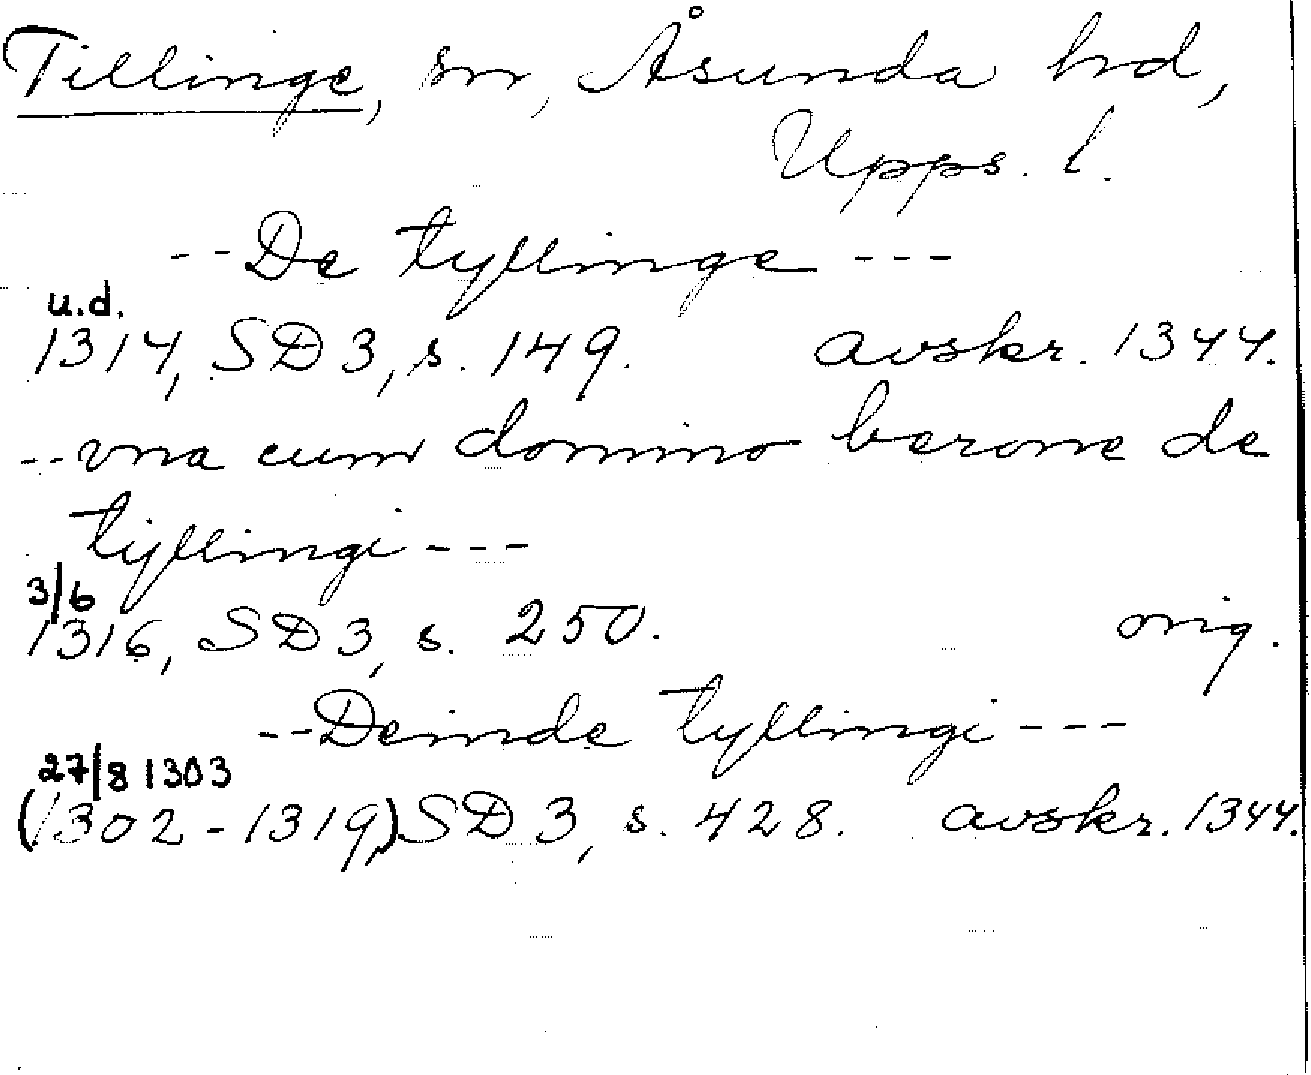 Tillinge, sn, Åsunda hd,
Upps. l.
-- De tyllinge ---
u.d.
1314, SD 3, s. 149. avskr. 1344.
-- vna cum domino berone de
tyllingi ---
3/6
1316, SD 3, s. 250. orig.
-- Deinde tyllingi ---
27/8 1303
(1302-1319,) SD 3, s. 428. avskr. 1344.